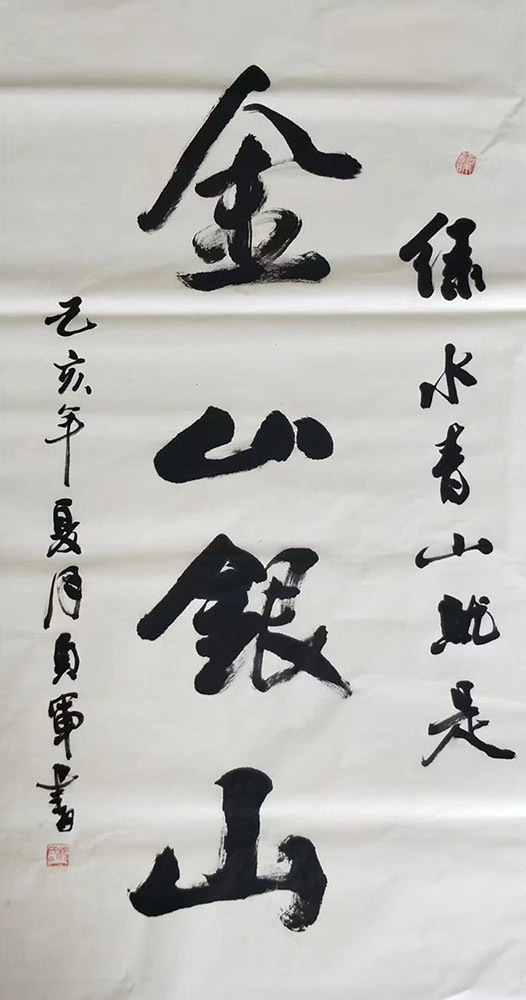 绿水青山就是
金山銀山
己亥年夏月贞軍書